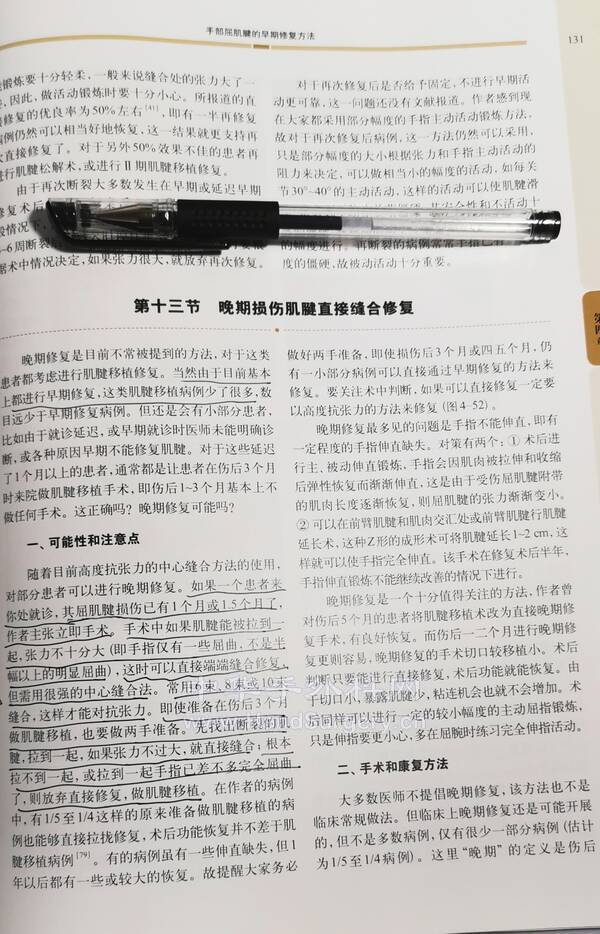 手部屈肌腱的早期修复方法
131
锻炼要十分轻柔，一般来说缝合处的张力大了一
，因此，做活动锻炼时要十分小心。所报道的直
修复的优良率为50%左右[41]，即有一半再修复
病例仍然可以相当好地恢复，这一结果就更支持再
次直接修复了。对于另外50%效果不佳的患者再
进行肌腱松解术，或进行Ⅱ期肌腱移植修复。
由于再次断裂大多数发生在早期或延迟早期
修复术后
~6周断裂
据术中情况决定，如果张力很大，就放弃再次修复。
对于再次修复后是否给予固定，不进行早期活
动更可靠，这一问题还没有文献报道。作者感到现
在大家都采用部分幅度的手指主动活动锻炼方法，
故对于再次修复后病例，这一方法仍然可以采用，
只是部分幅度的大小根据张力和手指主动活动的
阻力来决定，可以做相当小的幅度的活动，如每关
节30°~40°的主动活动，这样的活动可以使肌腱滑
的幅度进行。再断裂的病例常常手指已有
度的僵硬，故被动活动十分重要。
第十三节 晚期损伤肌腱直接缝合修复
晚期修复是目前不常被提到的方法，对于这类
患者都考虑进行肌腱移植修复。当然由于目前基本
上都进行早期修复，这类肌腱移植病例少了很多，数
目远少于早期修复病例。但还是会有小部分患者，
比如由于就诊延迟，或早期就诊时医师未能明确诊
断，或各种原因早期不能修复肌腱。对于这些延迟
了1个月以上的患者，通常都是让患者在伤后3个月
时来院做肌腱移植手术，即伤后1~3个月基本上不
做任何手术。这正确吗？晚期修复可能吗？
一、可能性和注意点
随着目前高度抗张力的中心缝合方法的使用，
对部分患者可以进行晚期修复。如果一个患者来
你处就诊，其屈肌腱损伤已有1个月或1.5个月了，
作者主张立即手术。手术中如果肌腱能被拉到一
起，张力不十分大（即手指仅有一些屈曲，不是半
幅以上的明显屈曲），这时可以直接端端缝合修复，
但需用很强的中心缝合法。常用6束、8束或10束
缝合，这样才能对抗张力。即使准备在伤后3个月
做肌腱移植，也要做两手准备。先找出断裂的肌
腱，拉到一起，如果张力不过大，就直接缝合；根本
拉不到一起，或拉到一起手指已差不多完全屈曲
了，则放弃直接修复，做肌腱移植。在作者的病例
中，有1/5至1/4这样的原来准备做肌腱移植的病
例也能够直接拉拢修复，术后功能恢复并不差于肌
腱移植病例[79]。有的病例虽有一些伸直缺失，但1
年以后都有一些或较大的恢复。故提醒大家务必
做好两手准备，即使损伤后3个月或四五个月，仍
有一小部分病例可以直接通过早期修复的方法来
修复。要关注术中判断，如果可以直接修复一定要
以高度抗张力的方法来修复（图4-52）。
晚期修复最多见的问题是手指不能伸直，即有
一定程度的手指伸直缺失。对策有两个：① 术后进
行主、被动伸直锻炼，手指会因肌肉被拉伸和收缩
后弹性恢复而渐渐伸直，这是由于受伤屈肌腱附带
的肌肉长度逐渐恢复，则屈肌腱的张力渐渐变小。
② 可以在前臂肌腱和肌肉交汇处或前臂肌腱行肌腱
延长术，这种Z形的成形术可将肌腱延长1~2 cm，这
样就可以使手指完全伸直。该手术在修复术后半年，
手指伸直锻炼不能继续改善的情况下进行。
晚期修复是一个十分值得关注的方法，作者曾
对伤后5个月的患者将肌腱移植术改为直接晚期修
复手术，有良好恢复。而伤后一二个月进行晚期修
复更则容易，晚期修复的手术切口较移植小。术后
判断只要能进行直接修复，术后功能就能恢复。由
于切口小，暴露肌腱少，粘连机会也就不会增加。术
后同样可以进行一定的较小幅度的主动屈指锻炼，
只是伸指要更小心，多在屈腕时练习完全伸指活动。
二、手术和康复方法
大多数医师不提倡晚期修复，该方法也不是
临床常规做法。但临床上晚期修复还是可能开展
的，但不是多数病例，仅有很少一部分病例（估计
为1/5至1/4病例）。这里“晚期”的定义是伤后